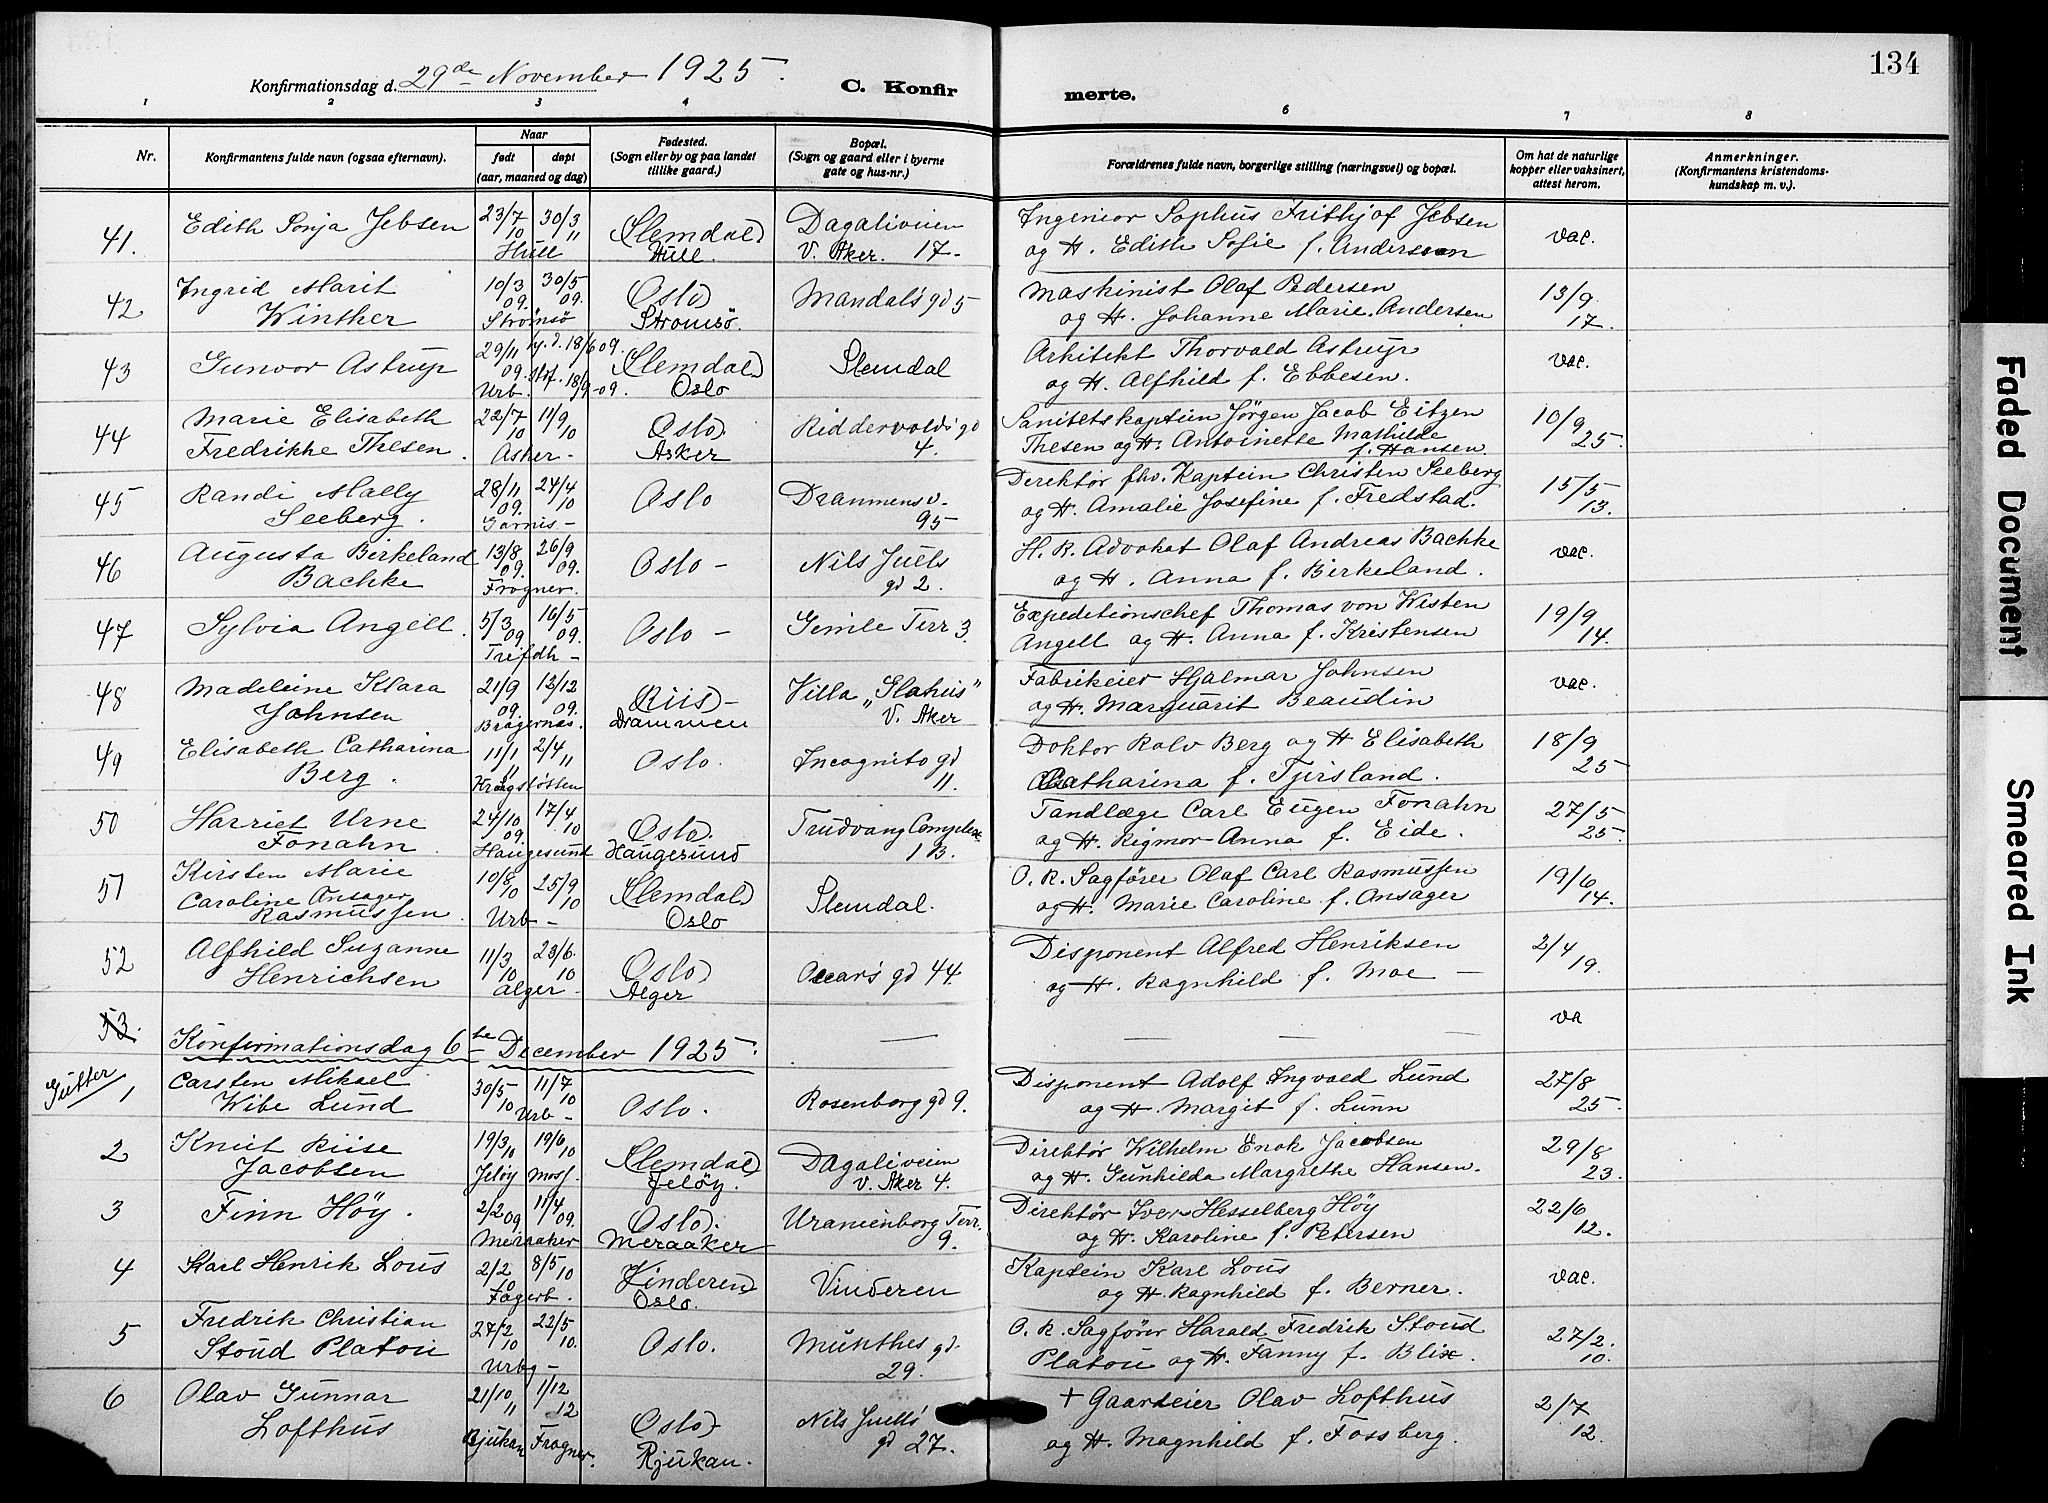 134
Konfirmationsdag d. 29de November 1925.
C. Konfirmerte.
1 2 3 4 5 6 7 8
Nr.
Konfirmantens fulde navn (ogsaa efternavn).
Naar
født døpt
(aar, maaned og dag)
Fødested.
(Sogn eller by og paa landet
tillike gaard.)
Bopæl.
(Sogn og gaard eller i byerne
gate og hus-nr.)
Forældrenes fulde navn, borgerlige stilling (næringsvei) og bopæl.
Om hat de naturlige
kopper eller vaksinert,
attest herom.
Anmerkninger.
(Konfirmantens kristendoms-
kundskap m. v.).
41. Edith Sonja Jebsen 23/7 10 30/3 11 Hull Slemdal Hull. Dagaliveien V. Aker. 17. Ingeniør Sophus Frithjof Jebsen vac.
og H. Edith Sofie f. Andersson
42 Ingrid Marit 10/3 09. 30/5 09. Oslo Mandals gd 5 Maskinist Olaf Pedersen 13/9
Winther Strømsø Strømsø. og H. Johanne Marie Andersen 17.
43 Gunvor Astrup 29/11 09. 18/6 09. Urb. 18/9-09. Slemdal Oslo Slemdal Arkitekt Thorvald Astrup vac.
og H. Alfhild f. Ebbesen.
44 Marie Elisabeth 22/7 10 11/9 10 Oslo Riddervolds gd Sanitetskaptein Jørgen Jacob Eitzen 10/9
Fredrikke Thesen. Asker - Asker 4. Thesen og H. Antoinette Mathilde f. Hansen. 25.
45 Randi Mally 28/11 09. 24/4 10 Oslo Drammensv. Direktør fhv. Kaptein Christen Seeberg 15/5
Seeberg. Garnis- 95 og H. Amalie Josefine f. Fredstad. 13.
46 Augusta Birkeland 13/8 09. 26/9 09. Oslo - Nils Juels H. R. Advokat Olaf Andreas Bachke vac.
Bachke Frogner. gd 2. og H. Anna f. Birkeland.
47 Sylvia Angell. 5/3 09. 16/5 09. Oslo - Gimle Terr 3. Expeditionschef Thomas von Westen 19/9
Trefdh - Angell og H. Anna f. Kristensen 14.
48 Madeleine Klara 21/9 09. 12/12 09. Riis - Villa „ " Fabrikeier Hjalmar Johnsen vac.
Johnsen Bragernes. Drammen V. Aker og H. Marguarit Beaudin
49 Elisabeth Catharina 11/1 11 2/4 11 Oslo. Incognito gd Doktor Rolv Berg og H Elisabeth 18/9
Berg. 11. Catharina f. Tjersland. 25
50 Harriet Urne 24/10 09. 17/4 10 Oslo. Trudvang Complex Tandlæge Carl Eugen Fonahn 27/5
Fonahn. Haugesund Haugesund 1 B. og H. Rigmor Anna f. Eide. 25.
51 Kirsten Marie 10/8 10 25/9 10 Slemdal Slemdal. O. R. Sagfører Olaf Carl Rasmussen 19/6
Caroline Ansager og H. Marie Caroline f. Ansager 14.
Rasmussen. Urb - Oslo
52 Alfhild Suzanne 11/3 10 23/6 10 Oslo Oscars gd 44. Disponent Alfred Henriksen 2/4
Henrichsen Alger - Alger og H. Ragnhild f. Moe - 19.
53. va
Konfirmationsdag 6te December 1925.
Gutter
1 Carsten Mikael 30/5 10 11/7 10 Oslo. Rosenborg gd 9. Disponent Adolf Ingvald Lund 27/8
Wibe Lund Urb - og H. Margit f. Lunn 25.
2 Knut Riise 19/3 10 19/6 10 Slemdal Dagaliveien Direktør Wilhelm Enok Jacobsen 29/8
Jacobsen Jeløy Moss. Jeløy. V. Aker 4. og H. Gunhilda Margrethe Hansen. 23.
3 Finn Høy. 2/2 09 11/4 09. Oslo. Uranienborg Terr. Direktør Iver Hesselberg Høy 22/6
Meraaker Meraaker 9. og H. Karoline f. Petersen 12.
4 Karl Henrik Lous 2/2 10 8/5 10 Vinderen Vinderen Kaptein Karl Lous vac.
Fagerb. Oslo. og H. Ragnhild f. Berner.
5 Fredrik Christian 27/2 10 22/5 10. Oslo. Munthes gd. O. R. Sagfører Harald Fredrik Stoud 27/2.
Stoud Platou Urbg - 29. Platou og H. Fanny f. Blix. 10.
6 Olav Gunnar 21/10 11 1/12 12 Oslo Nils Juels + Gaardeier Olav Lofthus 2/7
Lofthus Rjukan Frogner. Rjukan. gd 27. og H. Magnhild f. Fossberg. 12.
Faded Document
Smeared Ink